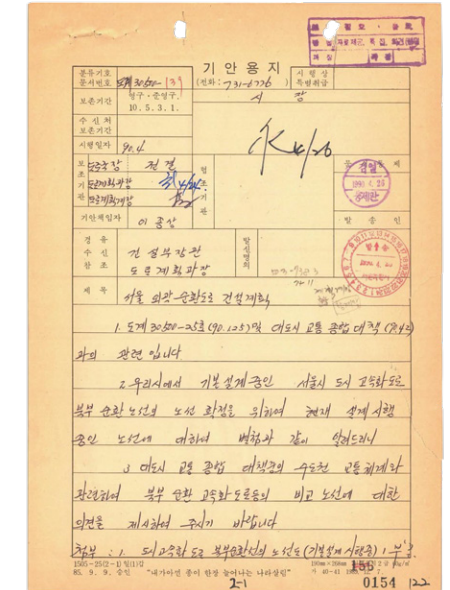 기안용지
분류기호
문서번호 도계30500-139
(전화: 731-6776)
시행상
특별취급
보존기간
영구·준영구.
10. 5. 3. 1.
시 장
수신처
보존기간
시행일자 90.4.
4/26
보조기관
도로국장 전결
도로계획과장 4/24
협조기관
기안책임자 이종상
발송인
경유
수신 건설부장관
참조 도로계획과장
발신명의
제목 서울 외곽순환도로 건설계획
1. 도계30500-258(90.1.25)및 대도시 교통 종합대책
과의 관련입니다
2. 우리시에서 기본설계중인 서울시 도시 고속화도로
북부 순환 노선의 노선 확정을 위하여 현재 설계 시행
중인 노선에 대하여 별첨과 같이 알려드리니
3. 대도시 교통 종합 대책중의 수도권 교통체계와
관련하여 북부 순환 고속화도로등의 비교 노선에 대한
의견을 제시하여 주시기 바랍니다
첨부: 1. 도시고속화 도로 북부순환선의 노선도(기본설계 시행중) 1부.
1505-25(2-1) 일(1)갑
85. 9. 9. 승인 "내가아낀 종이 한장 늘어나는 나라살림"
190mm×268mm
2-1
0154 122